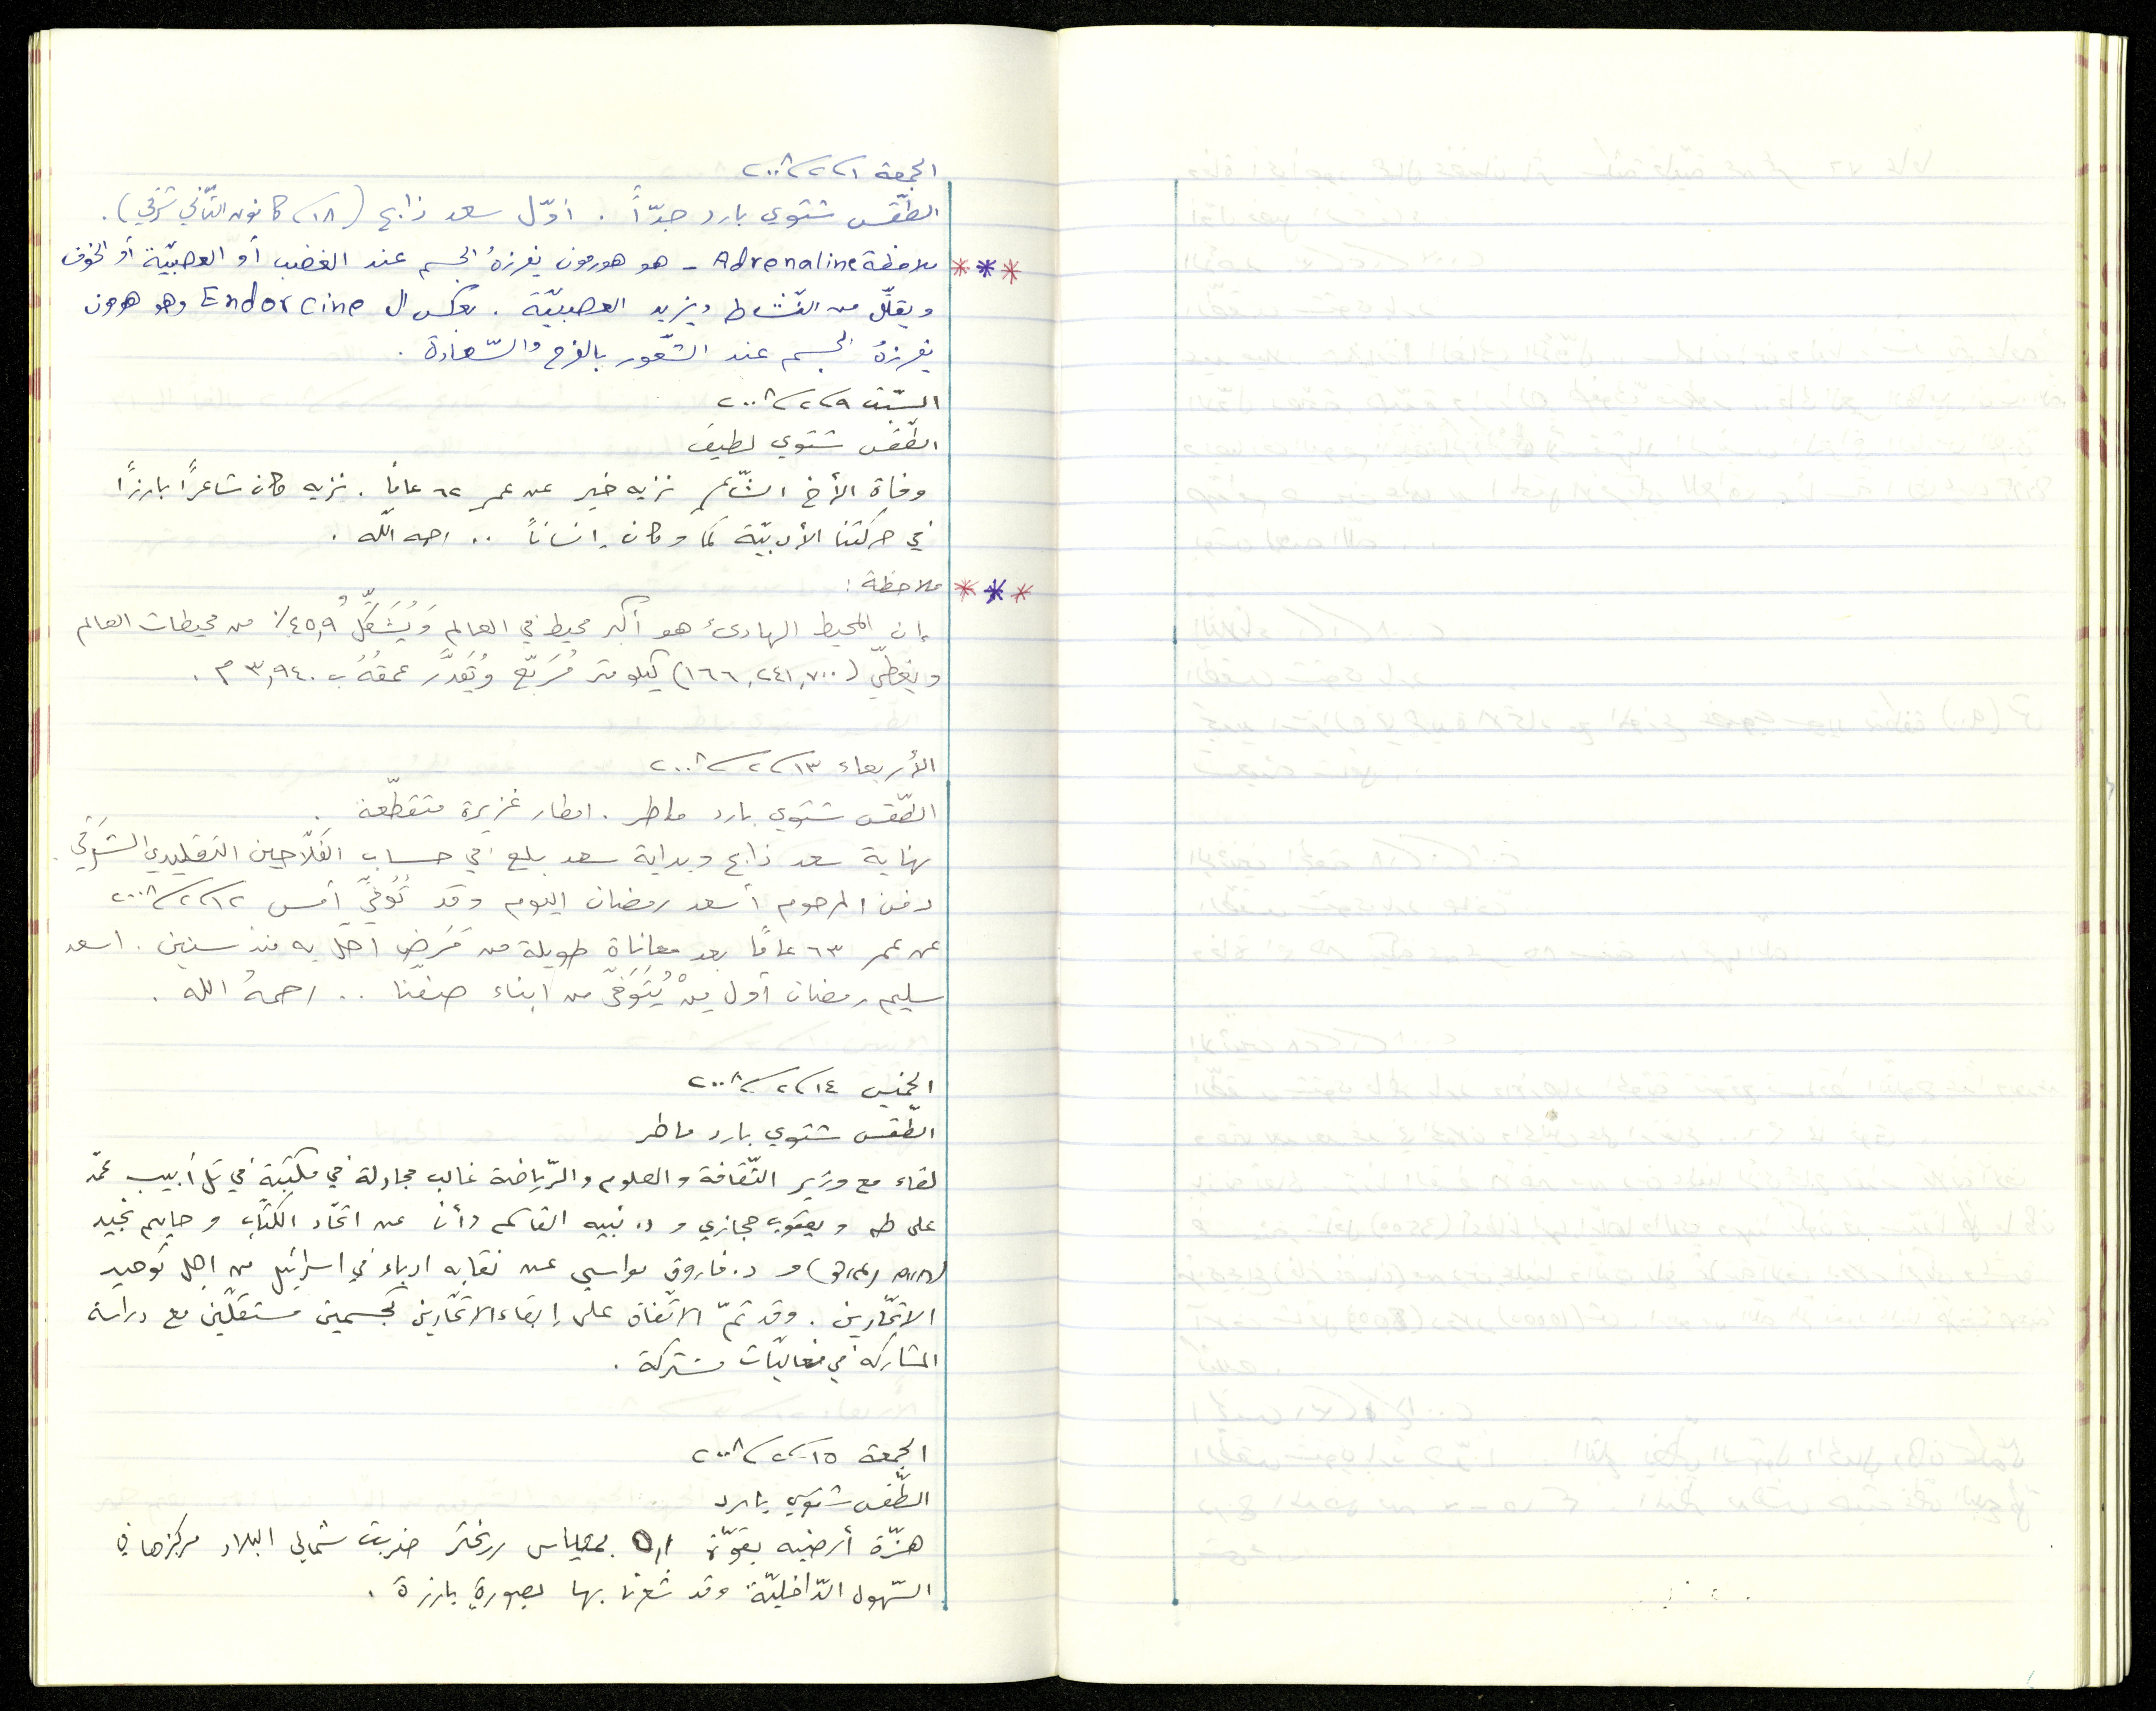 الجمعة ٢٠٠٨/٢/١
الطّقس شتوي بارد جدّاً . أوّل سعد ذابح (١٨/ كانون الثّاني شرقي) .
*** ملاحظة Adrenaline - هو هورمون يفرزهُ الجسم عند الغضب أو العصبيّة أو الخوف
ويقلّل من النّشاط ويزيد العصبيّة . بعكس ال Endorcine وهو هورمون
يفرزهُ الجسم عند الشّعور بالفرح والسّعادة .
السّبت ٢٠٠٨/٢/٩
الطّقس شتوي لطيف
وفاة الأخ الشّاعر نزيه خير عن عمر ٦٢ عاماً . نزيه كان شاعراً بارزاً
في حركتنا الأدبيّة كما وكان إنساناً .. رحمه الله .
*** ملاحظة :
إن المحيط الهادئ هو أكبر محيط في العالم وَيُشَكِّلُ ٤٥,٩٪ من محيطات العالم
ويغطّي (١٦٦,٢٤١,٧٠٠) كيلومتر مُرَبّع وَيُقَدَّر عمقهُ ب ٣,٩٤٠ م .
الأربعاء ٢٠٠٨/٢/١٣
الطّقس شتوي بارد ماطر . امطار غزيرة متقطّعة .
نهاية سعد ذابح وبداية سعد بلع في حساب الفلّاحين التقليدي الشّرقي .
دفن المرحوم أسعد رمضان اليوم وقد تُوُفّيَ أمس ٢٠٠٨/٢/١٢
عن عمر ٦٣ عامًا بعد معاناة طويلة من مَرَضٍ احلّ به منذ سنين . اسعد
سليم رمضان أول مِنْ يُتَوَفّى من ابناء صفنا .. رحمهُ الله .
الخميس ٢٠٠٨/٢/١٤
الطّقس شتوي بارد ماطر
لقاء مع وزير الثّقافة والعلوم والرّياضة غالب مجادلة في مكتبهِ في تل أبيب محمّد
علي طه ويعقوب حجازي و د. نبيه القاسم وأنا عن اتحّاد الكتّاب وحاييم نجيد
و د. فاروق مواسي عن نقابه ادباء في اسرائيل من اجل توحيد
الاتحّادين . وقد تمّ الاتّفاق على إبقاء الاتحّادين كجسمين مستقلّين مع دراسة
المشاركة في فعاليّات مشتركة .
الجمعة ٢٠٠٨/٢/١٥
الطّقس شتوي بارد
هزّة أرضيه بقوّة ٥,١ بمقياس ريختر ضربت شمالي البلاد مركزها في
السّهول الدّاخليّة وقد شعرنا بها بصورةٍ بارزة .